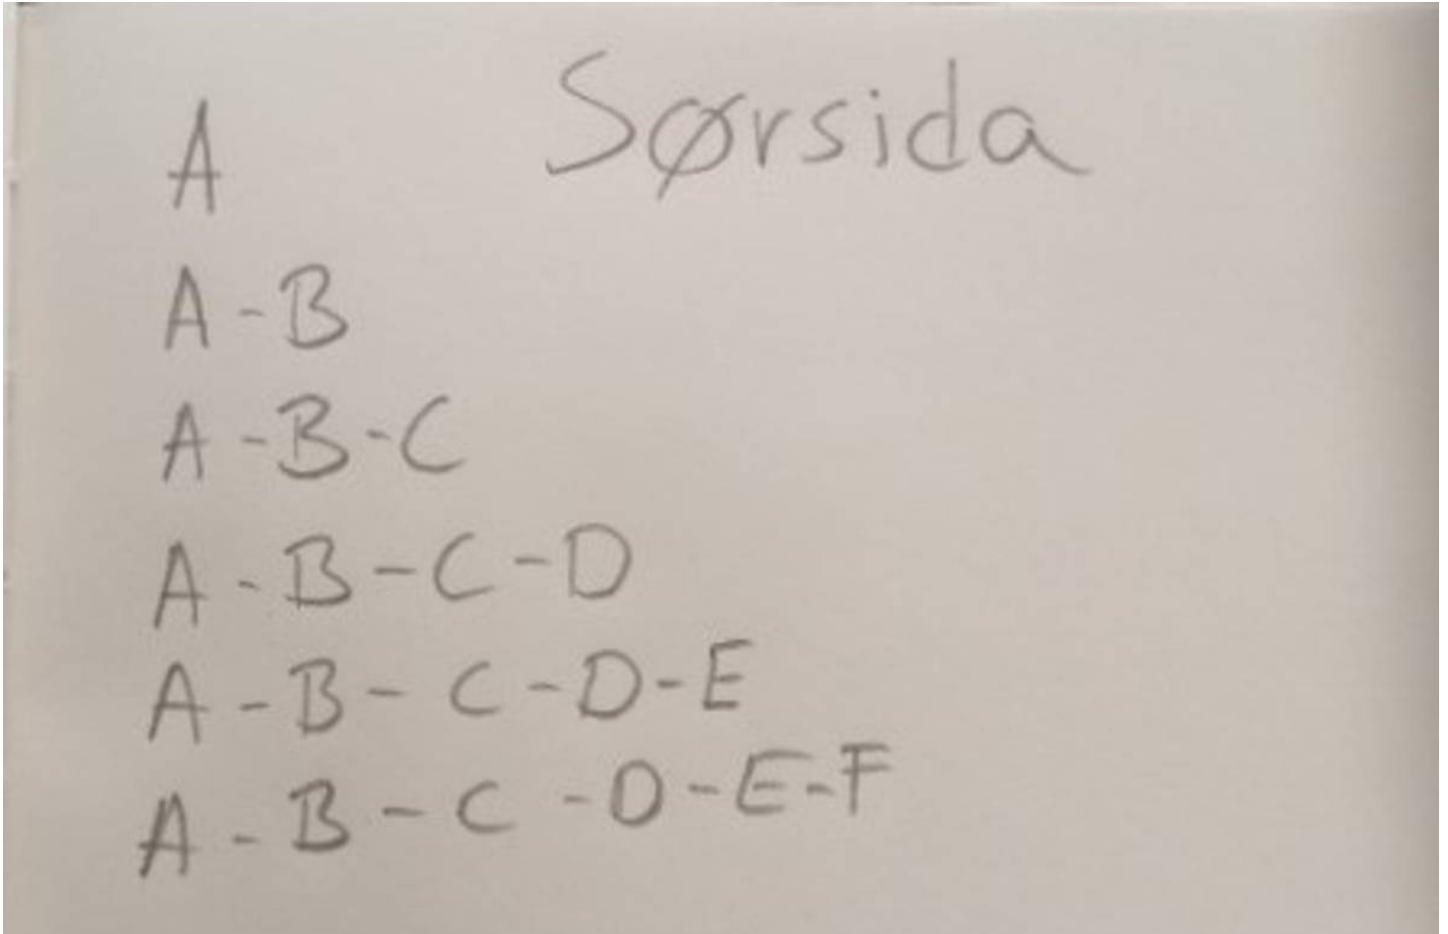 Sørsida
A
A - B
A - B - C
A - B - C - D
A - B - C - D - E
A - B - C - D - E - F